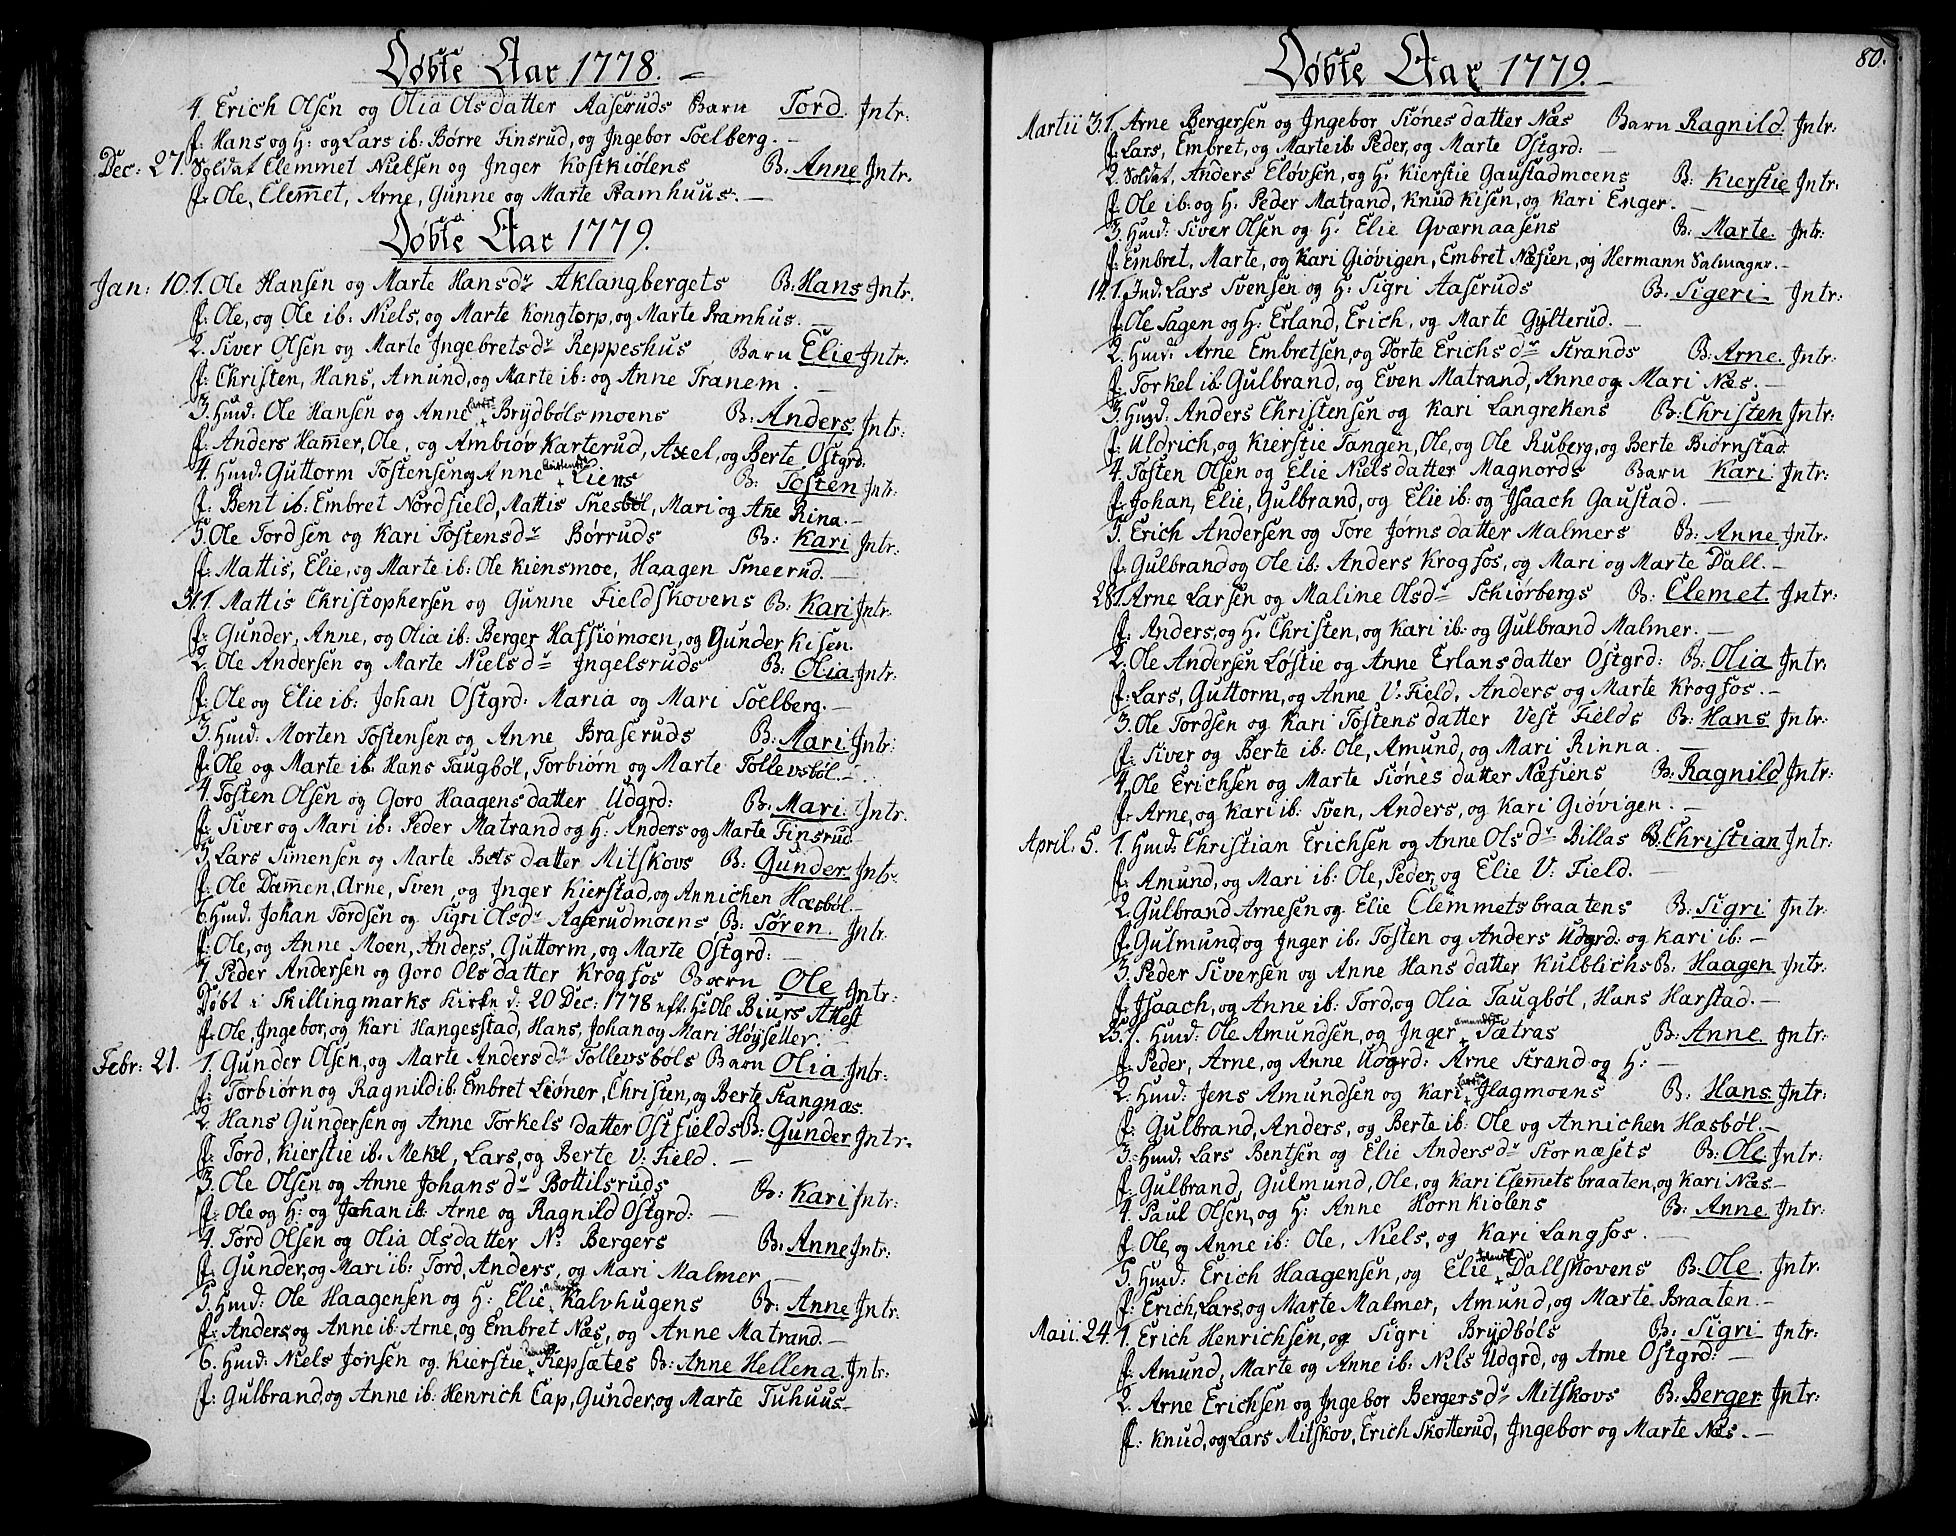 Døbte Aar 1778. –
4. Erich Olsen og Olia Olsdatter Aaseruds Barn Tord. Jntr:
f: Hans og H: og Lars ib: Børre Finsrud, og Ingebor Soelberg. –
Dec: 27. Soldat Clemmet Nielsen og Inger Kostkiølens B: Anne Jntr.
f: Ole, Clemet, Arne, Gunne og Marte Pramhuus. –
Døbte Aar 1779.
Jan: 10. 1. Ole Hansen og Marte Hansdr Aklangbergets B: Hans Jntr.
f: Ole, og Ole ib: Niels, og Marte Kongtorp, og Marte Pramhus. –
2. Siver Olsen og Marte Jngebretsdr Reppeshus Barn Elie Jntr:
f: Christen, Hans, Amund, og Marte ib: og Anne Tranem. –
3. Hmd: Ole Hansen og Anne Brydbølsmoens B: Anders. Jntr:
f: Anders Hamer, Ole, og Ambiør Karterud, Axel, og Berte Østgrd:
4. Hmd: Guttorm Tostensen og Anne Liens B: Tosten Jntr:
f: Bent ib: Embret Nordfield, Mattis Snesbøl, Mari og Ane Rina. –
5. Ole Tordsen og Kari Tostensdr Børruds B: Kari Jntr:
f: Mattis, Elie, og Marte ib: Ole Kiensmoe, Haagen Smeerud. –
31. 1. Mattis Christophersen og Gunne Fieldskovens B: Kari Jntr:
f: Gunder, Anne, og Olia ib: Berger Hafsiømoen, og Gunder Kisen.
2. Ole Andersen og Marte Nielsdr Jngelsruds B: Olia Jntr:
f: Ole og Elie ib: Johan Østgrd: Maria og Mari Soelberg. –
3. Hmd: Morten Tostensen og Anne Braseruds B: Mari Jntr:
f: Ole og Marte ib: Hans Taugbøl, Torbiørn og Marte Tollevsbøl. –
4. Tosten Olsen og Goro Haagensdatter Udgrd: B: Mari. Jntr.
f: Siver og Mari ib: Peder Matrand og H: Anders og Marte Finsrud
5. Lars Simensen og Marte Betsdatter Mitskovs B: Gunder Jntr.
f: Ole Damen, Arne, Sven og Jnger Kierstad, og Annichen Hæsbøl. –
6. Hmd. Johan Tordsen og Sigri Olsdr Aaserudmoens B: Søren. Jntr.
f: Ole, og Anne Moen, Anders, Guttorm, og Marte Østgrd: –
7. Peder Andersen og Goro Olsdatter Krogfos Barn Ole Jntr:
Døbt i Skillingmarks Kirke d: 20 Dec: 1778 eft. Hr Ole Biurs Attest
f: Ole, Jngebor, og Kari Hangesstad, Hans, Johan og Mari Høysetter. –
Febr: 21. 1. Gunder Olsen, og Marte Andersdr Tollevsbøls Barn Olia Jntr:
f: Torbiørn og Ragnild ib: Embret Leøner, Christen, og Berte Stangnæs.
2. Hans Gundersen og Anne Torkels datter Østfields B: Gunder Jntr.
f: Tord, Kierstie ib: Mekel, Lars, og Berte V: Field. –
3. Ole Olsen og Anne Johansdr Bottilsruds B: Kari Jntr:
f: Ole og H: og Johan ib: Arne og Ragnild Østgrd: –
4. Tord Olsen og Olia Olsdatter N: Bergers B: Anne Jntr:
f: Gunder, og Mari ib: Tord, Anders, og Mari Malmer –
5. Hmd: Ole Haagensen og H: Elie Kalvhugens B: Anne Jntr:
f: Anders, og Anne ib: Arne, og Embret Næs, og Anne Matrand. –
6. Hmd: Niels Jonsen og Kierstie Repsætes B: Anne Hellena Jntr:
f: Gulbrand, og Anne ib: Henrich Cap, Gunder, og Marte Tuhuus –
80.
Døbte Aar 1779. –
Martii 3. 1. Arne Bergersen og Jngebor Siønesdatter Næs Barn Ragnild. Jntr:
f: Lars, Embret, og Marte ib: Peder, og Marte Østgrd: –
2. Soldat, Anders Eløvsen, og H: Kierstie Gaustadmoens B: Kierstie Jntr:
f: Ole ib: og H: Peder Matrand, Knud Kisen, og Kari Enger. –
3. Hmd: Siver Olsen og H: Elie Qværnaasens B: Marte. Jntr:
f: Embret, Marte, og Kari Giøvigen, Embret Næsien, og Hermann Salmager. –
14. 1. Jnd: Lars Svensen og H: Sigri Aaseruds B: Sigeri Jntr:
f: Ole Sagen og H: Erland, Erich, og Marte Gylterud. –
2. Hmd: Arne Embretsen, og Dorte Erichsdr Strands B: Arne. Jntr:
f: Torkel ib: Gulbrand, og Even Matrand, Anne og Mari Næs. –
3. Hmd: Anders Christensen og Kari Langrekens B: Christen Jntr:
f: Uldrich, og Kierstie Tangen, Ole, og Ole Ruberg, og Berte Biørnstad
4. Tosten Olsen og Elie Nielsdatter Magnords Barn Kari. Jntr:
f: Johan, Elie, Gulbrand, og Elie ib: og Jsaach Gaustad. –
5. Erich Andersen og Tore Jørnsdatter Malmers B: Anne Jntr:
f: Gulbrand og Ole ib: Anders Krogfos, og Mari og Marte Dall. –
28. 1. Arne Larsen og Maline Olsdr Schiørbergs B: Clemet. Jntr:
f: Anders, og H: Christen, og Kari ib: og Gulbrand Malmer. –
2. Ole Andersen Løstie og Anne Erlansdatter Østgrd: B: Olia Jntr:
f: Lars, Guttorm, og Anne V: Field, Anders og Marte Krogfos. –
3. Ole Tordsen og Kari Tostensdatter Vest Fields B: Hans Jntr:
f: Siver og Berte ib: Ole, Amund, og Mari Rinna. –
4. Ole Erichsen og Marte Siønes datter Næsiens B: Ragnild Jntr:
f: Arne, og Kari ib: Sven, Anders, og Kari Giøvigen. –
April: 5. 1. Hmd: Christian Erichsen og Anne Olsdr Billas B: Christian Jntr:
f: Amund, og Mari ib: Ole, Peder, og Elie V: Field. –
2. Gulbrand Arnesen og Elie Clemmetsbraatens B: Sigri Jntr:
f: Gulmund, og Jnger ib: Tosten og Anders Udgrd: og Kari ib: –
3. Peder Siversen og Anne Hansdatter Kulblichs B: Haagen Jntr:
f: Jsaach, og Anne ib: Tord, og Olia Taugbøl, Hans Harstad. –
25. 1. Hmd: Ole Amundsen, og Jnger Sætras B: Anne. Jntr:
f: Peder, Arne, og Anne Udgrd: Arne Strand og H: –
2. Hmd: Jens Amundsen og Kari Hagmoens B: Hans. Jntr:
f: Gulbrand, Anders, og Berte ib: Ole og Annichen Hæsbøl. –
3. Hmd: Lars Bentsen og Elie Andersdr Stornæsets B: Ole Jntr:
f: Gulbrand, Gulmund, Ole, og Kari Clemetsbraaten, og Kari Næs –
4. Paul Olsen, og H: Anne Hornkiølens B: Anne. Jntr:
f: Ole, og Anne ib: Ole, Niels, og Kari Langfos. –
5. Hmd: Erich Haagensen, og Elie Dallskovens B: Ole. Jntr:
f: Erich, Lars, og Marte Malmer, Amund, og Marte Braaten. –
Maii: 24. 1. Erich Henrichsen, og Sigri Brydbøls B: Sigri Jntr:
f: Amund, Marte og Anne ib: Nils Udgrd, og Arne Østgrd: –
2. Arne Erichsen og Jngebor Bergersdr Mitskovs B: Berger Jntr:
f: Knud, og Lars Mitskov, Erich Skotterud, Jngebor og Marte Næs. –